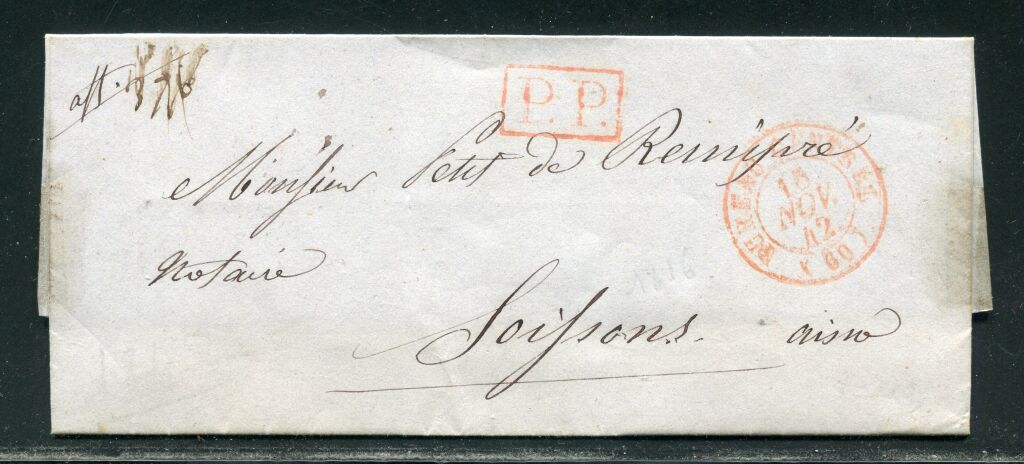 aff.
P.P.
Monsieur Petit de Reimpré
Notaire
Soissons. aisne
BUREAU
15
NOV.
42
(60)